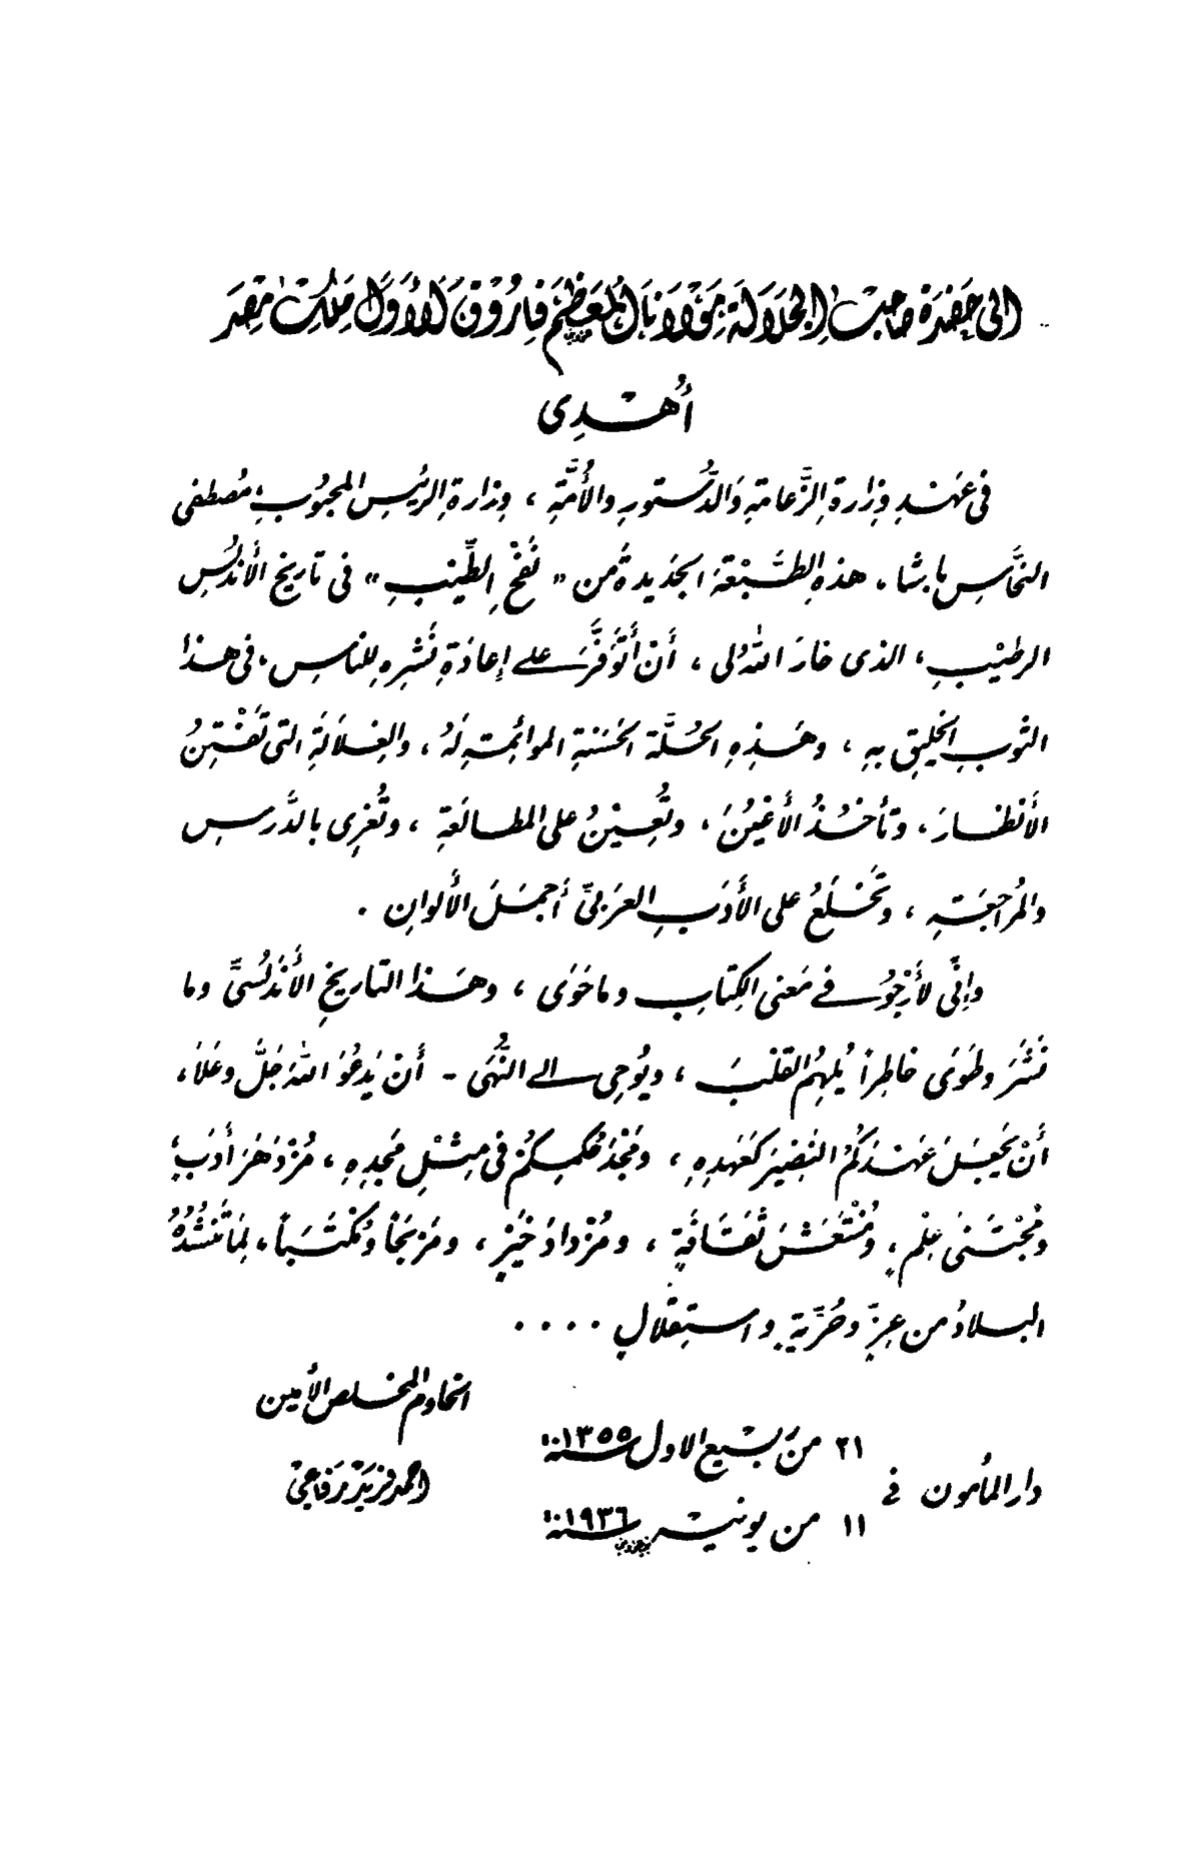 إلى حَضْرَةِ صَاحِبِ الجَلَالَةِ مَوْلَانَا المُعَظَّمِ فَارُوقَ الأَوَّلِ مَلِكِ مِصْرَ
أُهْدِى
فى عَهْدِ وِزارةِ الزَّعامةِ وَالدُّستورِ والأُمَّةِ ، وِزارةِ الرئيسِ المحبُوبِ؛ مُصطفى
النحَّاسِ باشا ، هذهِ الطَّبْعَةَ الجَدِيدةَ من « نَفْحِ الطِّيْبِ » فى تاريخِ الأَندلُسِ
الرطيْبِ ، الذى خارَ اللهُ لى ، أَنْ أَتَوَفَّرَ على إِعادَةِ نَشْرِهِ للناسِ ، فى هذا
الثوبِ الخَلِيقِ بهِ ، وهَذِهِ الحُلَّةِ الحَسَنةِ الموائمةِ لَهُ ، والغِلَالَةِ التى تَفْتِنُ
الأَنْظارَ ، وتأخُذُ الأَعْيُنَ ، وتُعِيْنُ على المطالَعَةِ ، وتُغرِى بالدَّرسِ
والمُراجَعَةِ ، وتَخْلَعُ على الأَدَبِ العَرَبىِّ أَجمَلَ الأَلوانِ .
وإِنِّى لأَرْجُو فى مَعنى الكِتابِ وما حَوَى ، وهَذا التاريخِ الأَنْدَلُسىِّ وما
نَشَرَ وطَوَى خاطِراً يُلهِمُ القَلْبَ ، ويُوحِى إلى النُّهَى - أَنْ يَدعُوَ اللهَ جَلَّ وعَلَا ،
أَنْ يَجْعَلَ عَهْدَكُمُ النَضِيرَ كَعَهدِهِ ، ومَجْدَ حُكمِكُمْ فى مِثْلِ مَجدِهِ ، مُزْدَهَرَ أَدَبٍ ؛
ومُجْتَنَى عِلْمٍ ، ومُنْتَعَشَ ثَقَافَةٍ ، ومُزْدادَ خَيْرٍ ، ومَرْبَحاً ومُكْتَسَباً ، لِمَا تَنْشُدُهُ
البلادُ من عِزٍّ وحُرِّيَّةٍ واستِقلالٍ ....
الخادم المخلص الأمين
٢١ من ربيع الاول سنة ١٣٥٥
دار المأمون فى
احمد فريد رفاعى
١١ من يونيه سنة ١٩٣٦